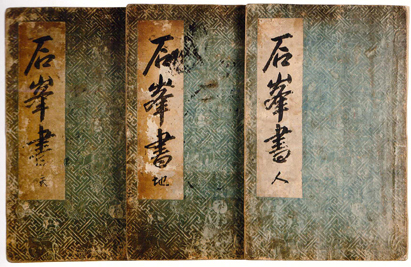 石峯書 天
石峯書 地
石峯書 人